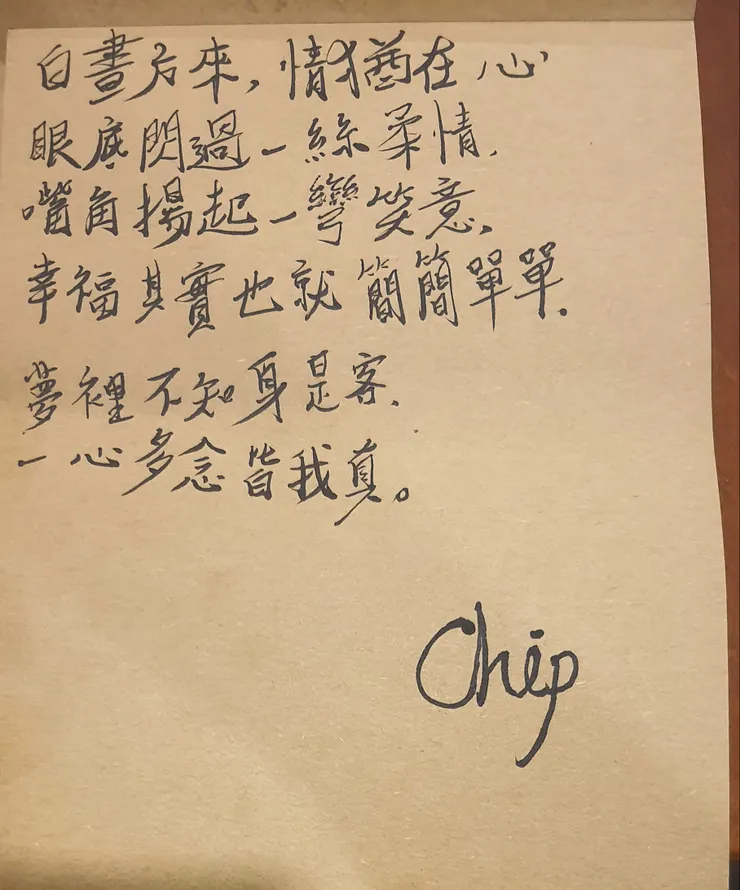 白晝右來，情猶在心
眼底閃過一絲柔情，
嘴角揚起一彎笑意，
幸福其實也就簡簡單單．
夢裡不知身是客，
一心多念皆我真。
Chip